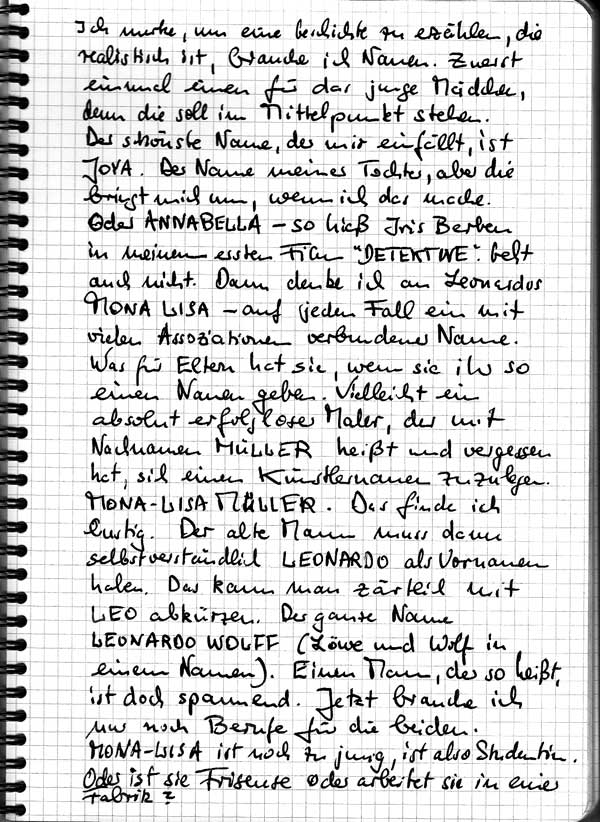 Ich merke, um eine Geschichte zu erzählen, die
realistisch ist, brauche ich Namen. Zuerst
einmal einen für das junge Mädchen,
denn die soll im Mittelpunkt stehen.
Der schönste Name, der mir einfällt, ist
JOVA. Der Name meiner Tochter, aber die
bringt mich um, wenn ich das mache.
Oder ANNABELLA – so hieß Iris Berben
in meinem ersten Film "DETEKTIVE". Geht
auch nicht. Dann denke ich an Leonardos
MONA LISA – auf jeden Fall ein mit
vielen Assoziationen verbundener Name.
Was für Eltern hat sie, wenn sie ihr so
einen Namen geben. Vielleicht ein
absolut erfolgloser Maler, der mit
Nachnamen MÜLLER heißt und vergessen
hat, sich einen Künstlernamen zuzulegen.
MONA-LISA MÜLLER. Das finde ich
lustig. Der alte Mann muss dann
selbstverständlich LEONARDO als Vornamen
haben. Das kann man zärtlich mit
LEO abkürzen. Der ganze Name
LEONARDO WOLFF (Löwe und Wolf in
einem Namen). Einen Mann, der so heißt,
ist doch spannend. Jetzt brauche ich
nur noch Berufe für die beiden.
MONA-LISA ist noch zu jung, ist also Studentin.
Oder ist sie Friseuse oder arbeitet sie in einer
Fabrik?